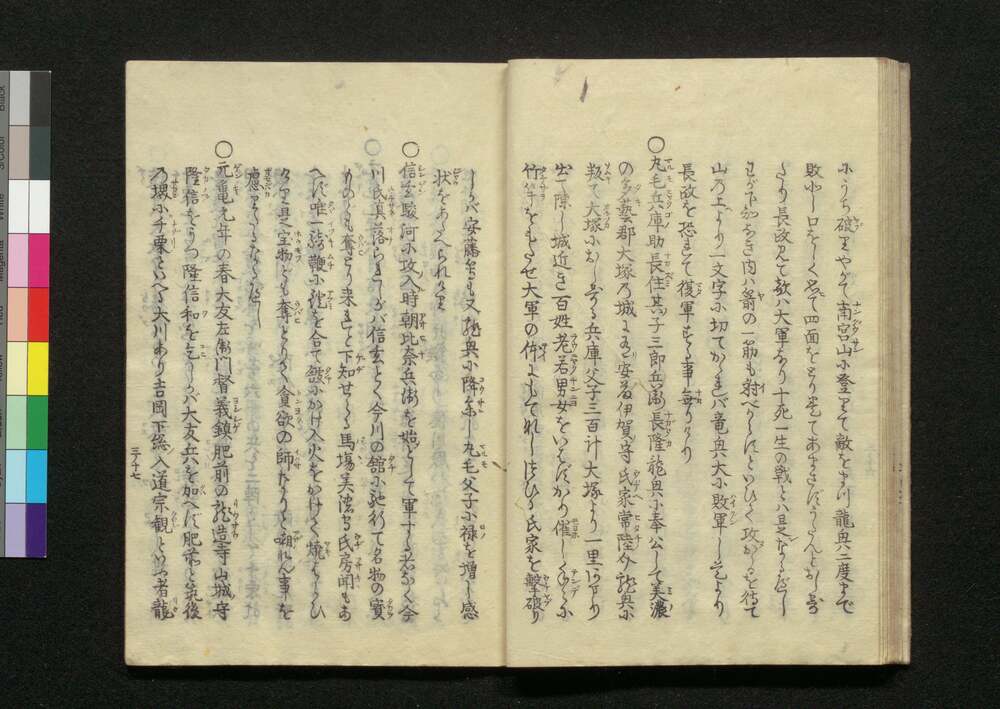 にうち破りやがて南宮山に登りて敵をまつ龍興二度まで
敗れし口をしく思て四面をとりまきてあまさだうたんとおし寄
たり長政見て敵ハ大軍なり十死一生の戦とハ是なるべし
わが下知なき内ハ箭の一筋も射べからにといひて攻かるを待て
山乃上より一文字に切てかゝれバ竜興大に敗軍し是より
長政を恐れて後軍する事毎々なり
〇丸毛兵庫助長住其子三郎兵衛長隆龍興に奉公して美濃
の多藝郡大塚乃城に有安藤伊賀守氏家常陸介龍興に
叛て大塚におし寄る兵庫父子三百計大塚より一里
出て隙し城近き百姓老若男女をいはだかり催し
竹をもたせ大軍の作にもてれし氏家を撃破り
しかバ安藤も又龍興に降参し丸毛父子に禄を増し感
状をあたへられけり
〇信玄駿河に攻入時朝比奈兵衛を始として軍する者なく今
川氏真落られてが信玄とく今川の舘に馳行て名物の宝
ものども奪とり来れと下知せらる馬場美濃守氏房聞もあ
へだ唯一騎鞭に鐙を合て舘にかけ入火をかけて焼はらひ
けり是宝物ども奪とりて貪欲の師なりと嘲れん事を
慮りてなるべし
〇元亀元年の春大友左衛門督義鎮肥前の龍造寺山城守
隆信をうつ隆信和を乞しバ大友兵を加へだ肥前と筑後
乃堺に千栗といへる大川あり吉岡下総入道宗観といふ者龍
三ノ十七